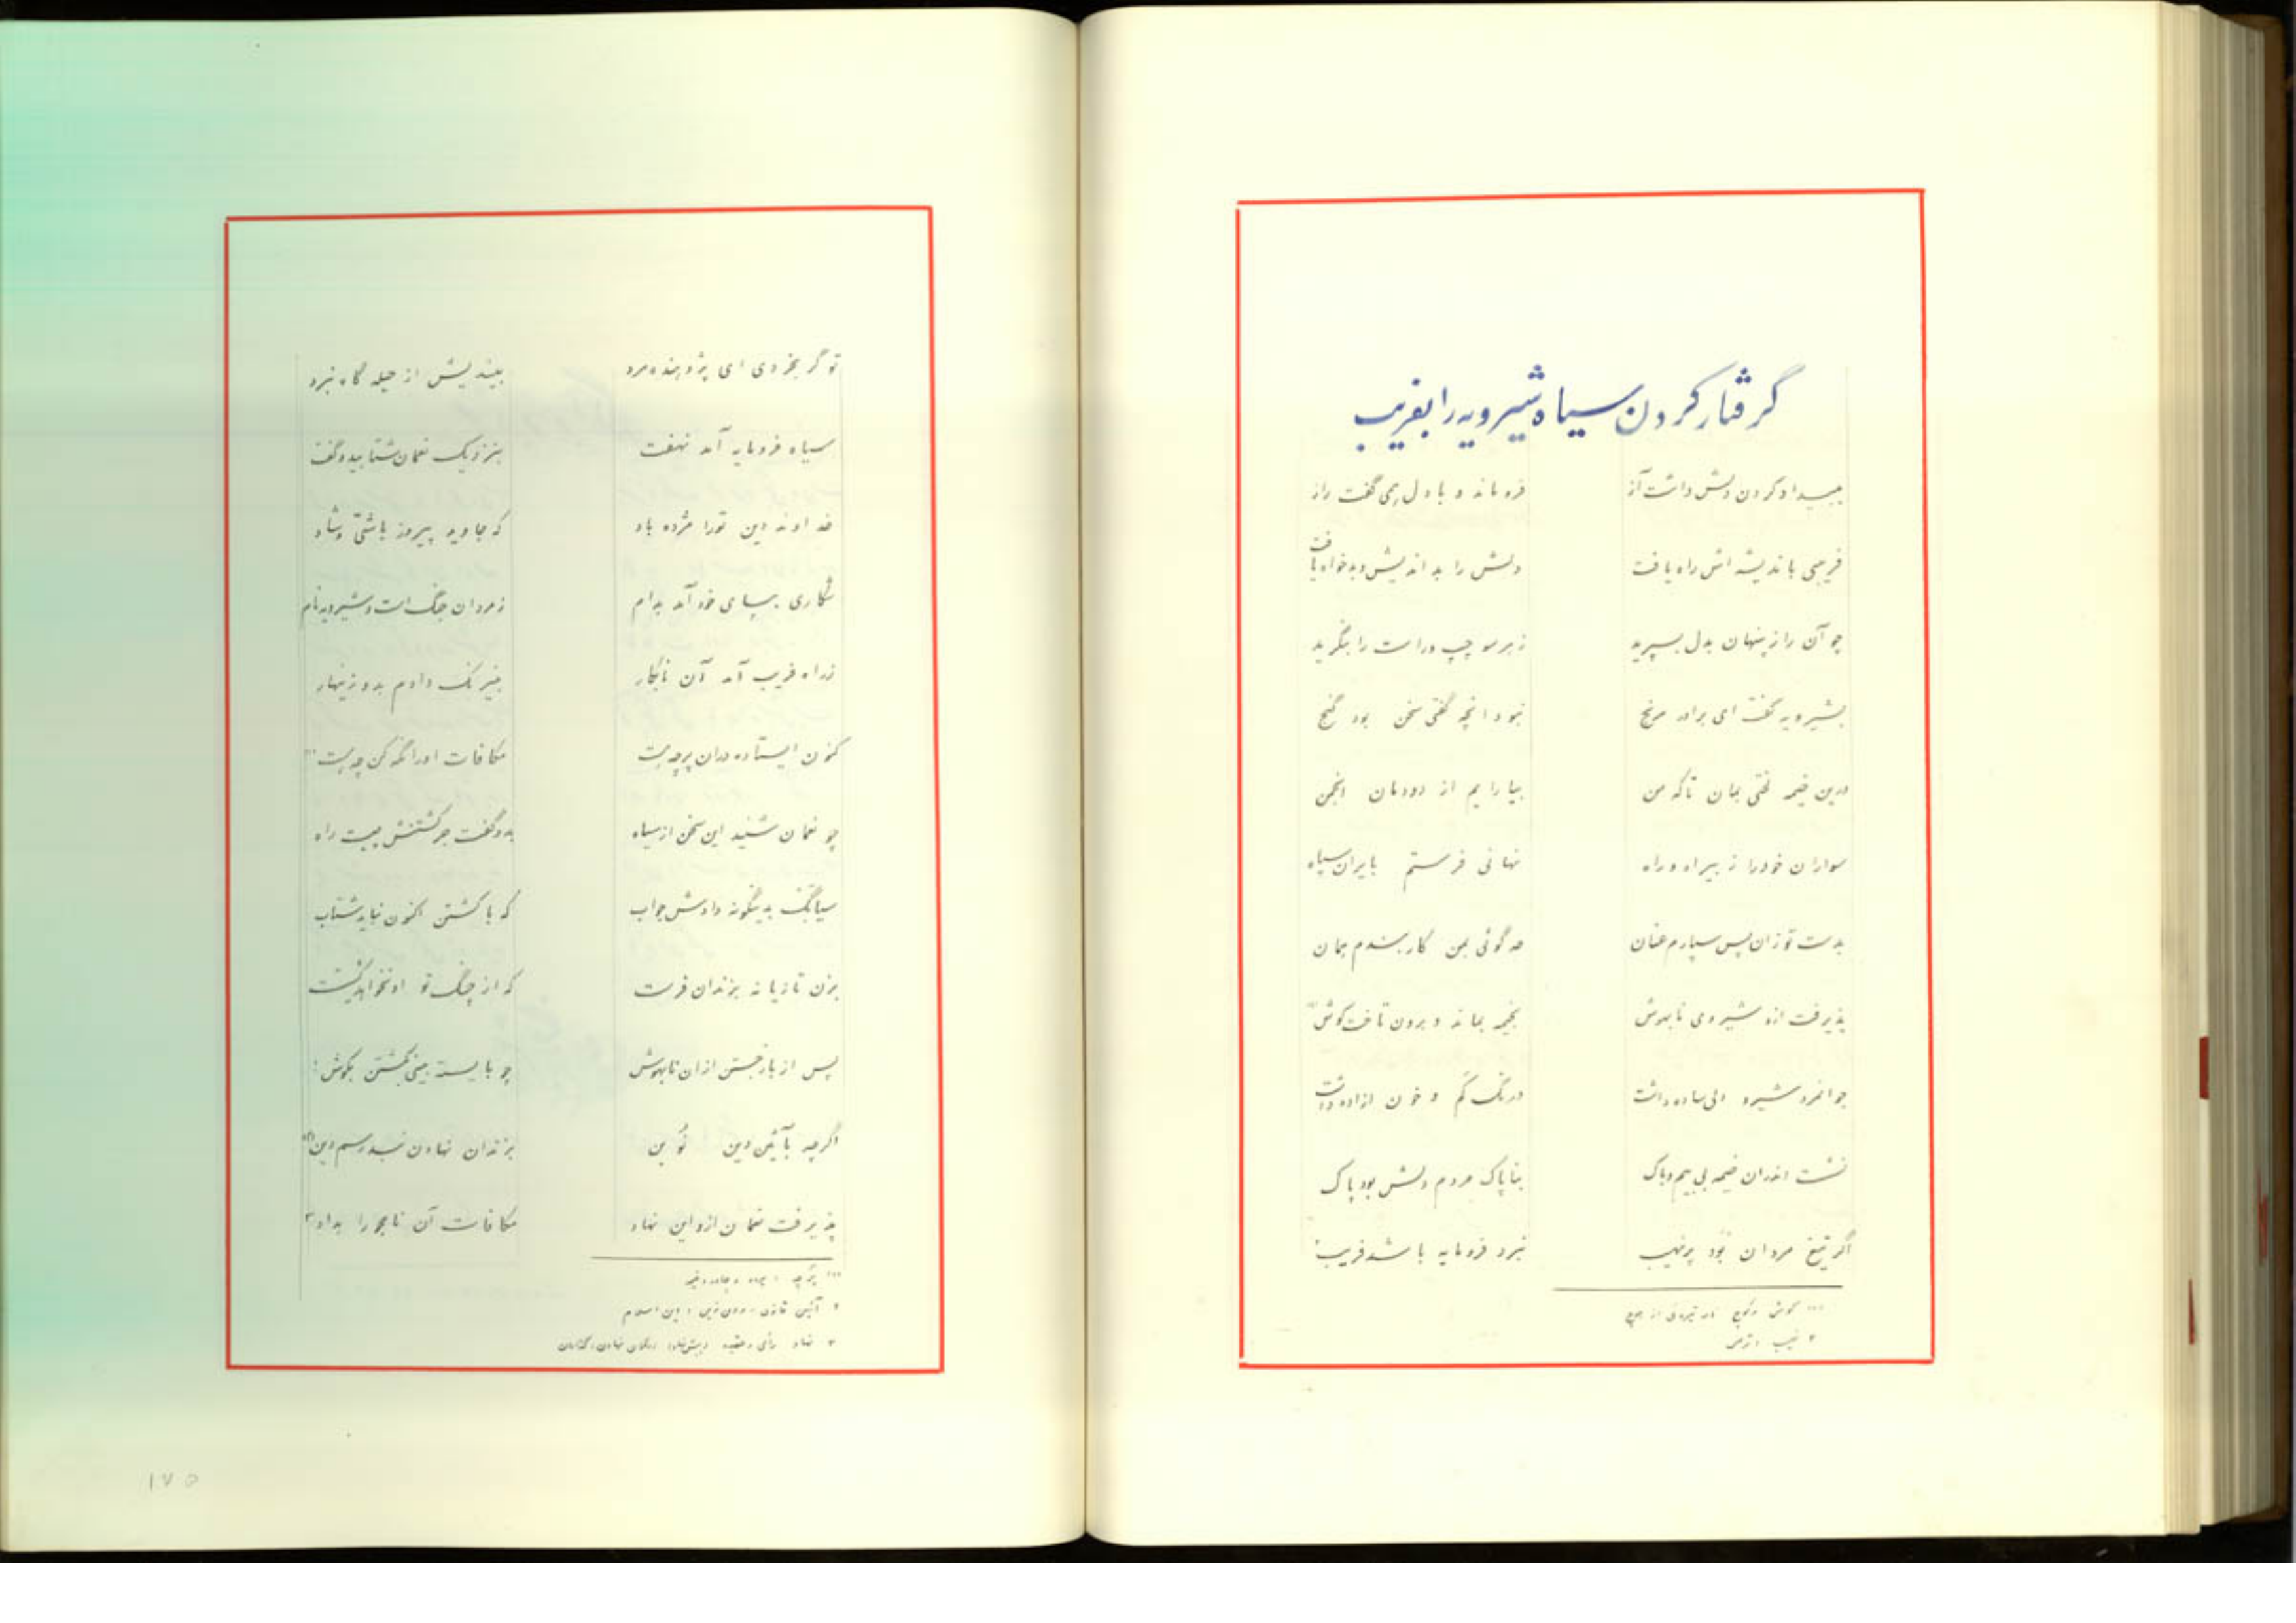 گرفتار کردن سیاه شیرویه را بفریب
ببیداد کردن دلش داشت آز فرو ماند و با دل همی گفت راز
فریبی باندیشه اش راه یافت دلش را بداندیش و بدخواه یافت
چو آن راز پنهان بدل بسپرید ز هر سو چپ و راست را بنگرید
بشیرویه گفت ای برادر مرنج نبود آنچه گفتی سخن بود گنج
درین خیمه لختی بمان تا که من بیارایم از دودمان انجمن
سواران خود را ز بیراه و راه نهانی فرستم بایران سپاه
بدست تو زان پس سپارم عنان چه گوئی بمن کار بندم همان
پذیرفت ازو شیروی نابهوش بخیمه بماند و برون تاخت کوش
جوانمرد شیرو دلی ساده داشت درنگ کم و خون آزاده داشت
نشست اندران خیمه بی بیم و باک بناپاک مردم دلش بود پاک
اگر تیغ مردان بود پر نهیب نبرد فرومایه باشد فریب
کوش و کوچ
۲ نهیب : ترس
تو گر بخردی ای پژوهنده مرد بیندیش از حیله گاه نبرد
سیاه فرومایه آمد نهفت بنزدیک نعمان شتابید و گفت
خداوند این تو را مژده باد که جاوید پیروز باشی و شاد
شکاری بپای خود آمد بدام ز مردان جنگ است و شیرویه نام
ز راه فریب آمد آن نابکار بنیرنگ دادم بدو زینهار
کنون ایستاده در آن پرچه است مکافات او را نگه کن چه است
چو نعمان شنید این سخن از سیاه بدو گفت جز کشتنش چیست راه
سیاهک بدینگونه دادش جواب که با کشتن اکنون نباید شتاب
بزن تازیانه بزندان فرست که از چنگ تو او نخواهد گسست
پس از باز جستن از ان نابهوش چو بایسته بینی بکشتن بکوش
اگرچه بآئین دین نوین بزندان نهادن نبد رسم دین
پذیرفت نعمان ازو این نهاد مکافات آن نامجو را بداد
پرچه : پرده و چادر و خیمه
۲ آئین قانون دین نوین : دین اسلام
۳ نهاد رأی و عقیده
۱۷۵